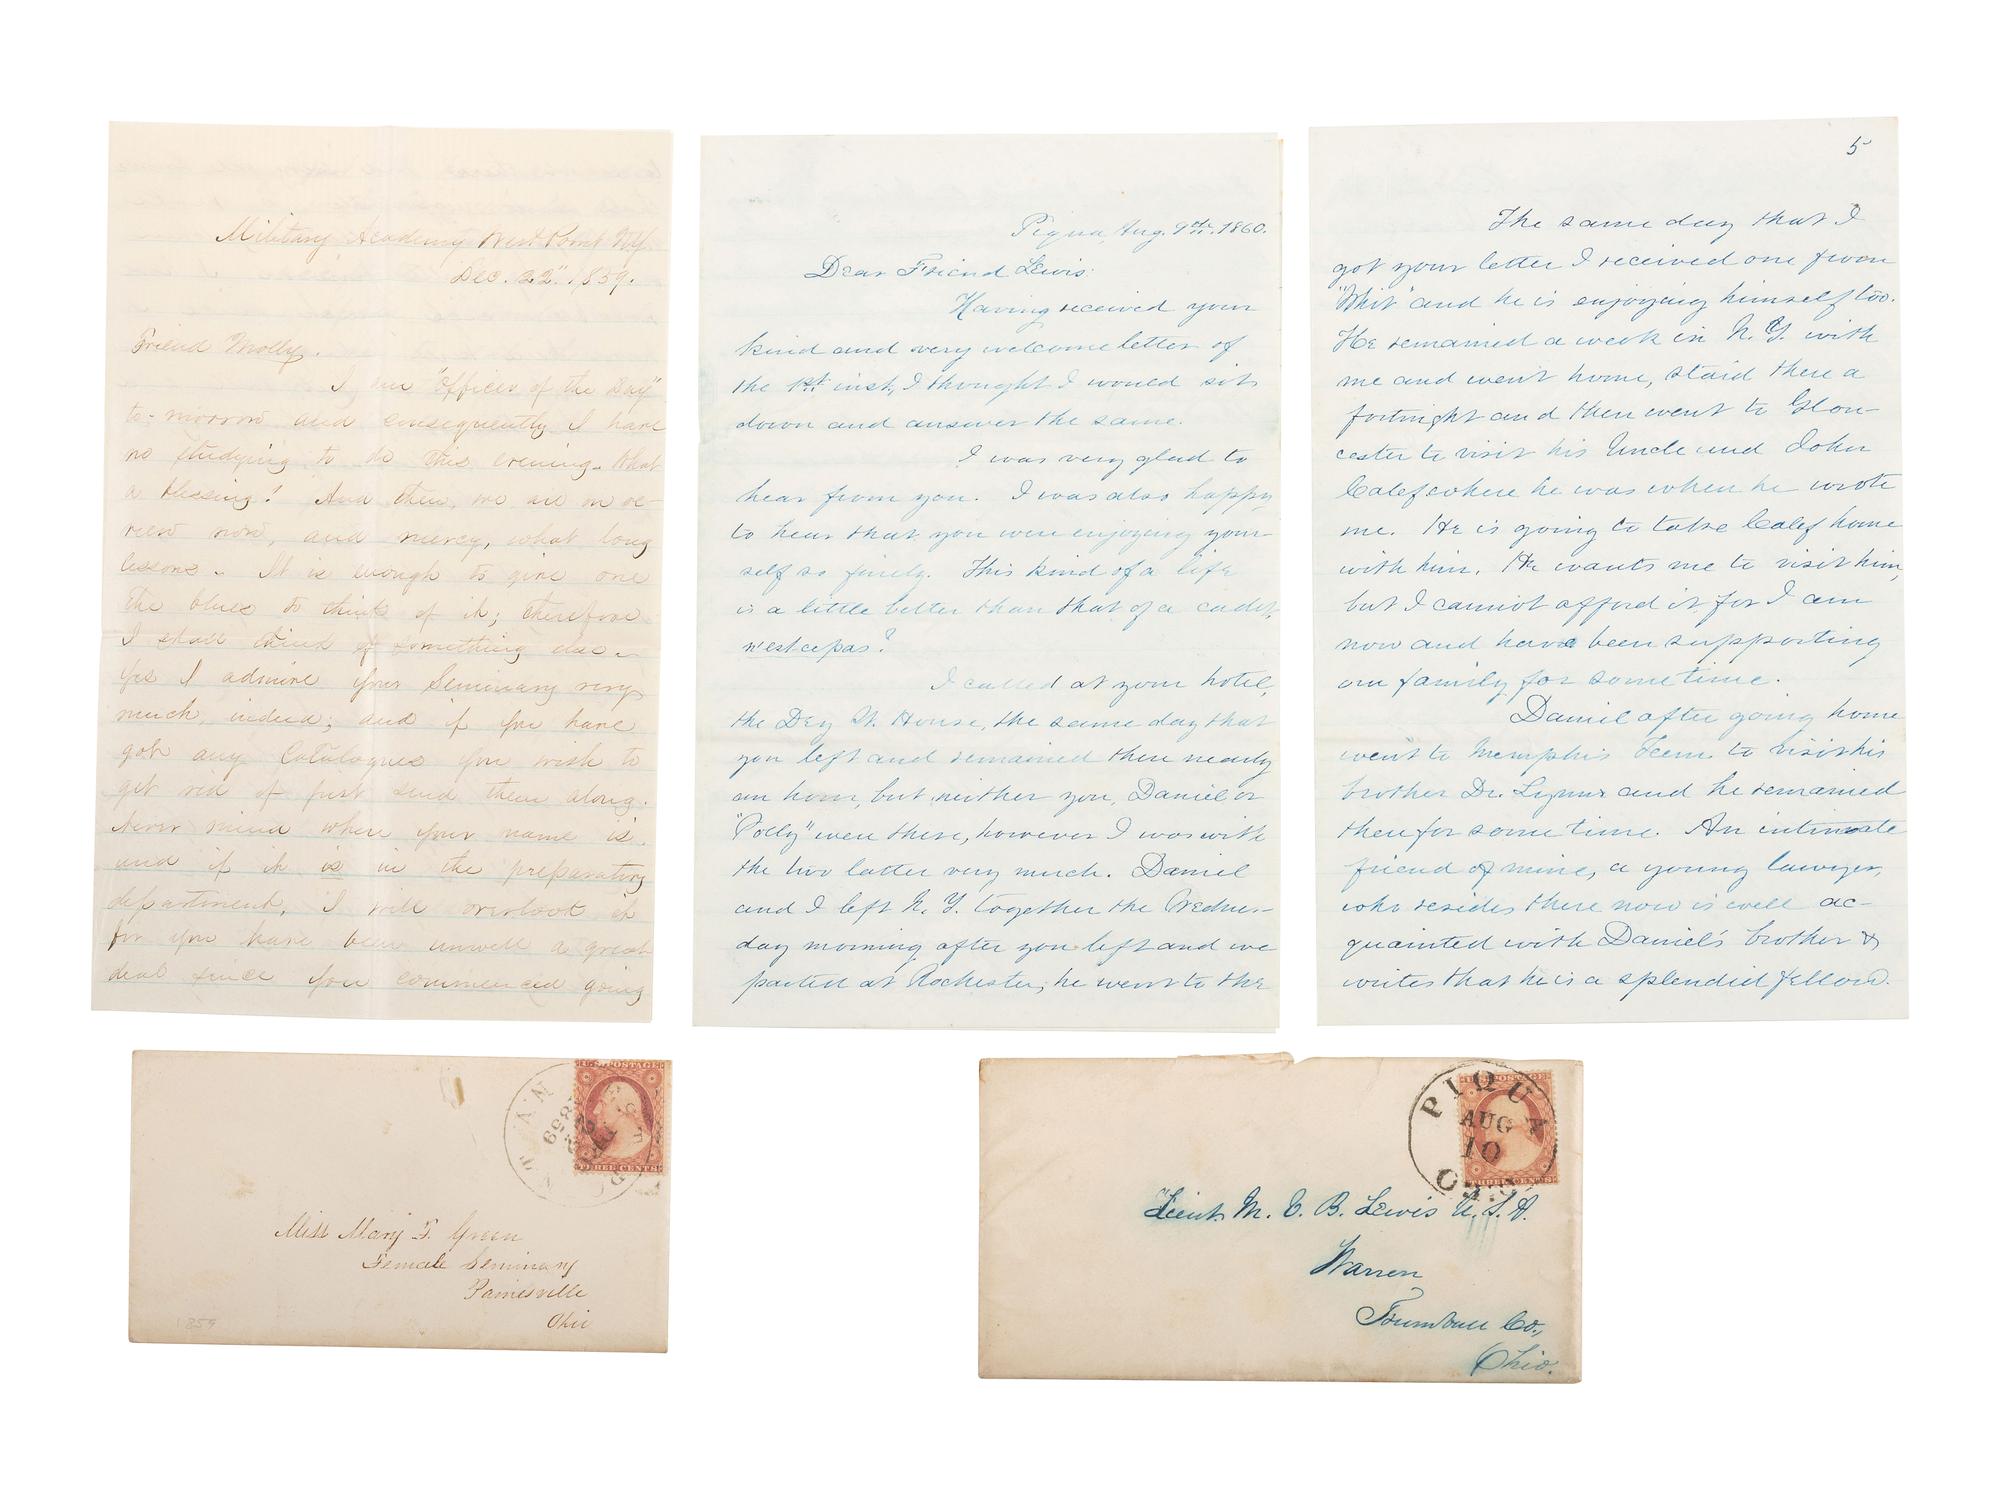 Military Academy West Point NY.
Dec. 22", 1859.
Friend Molly.
I am "officer of the Day"
to-morrow and consequently I have
no studying to do this evening - what
a blessing! And then, we are on re-
view now, and mercy, what long
lessons - It is enough to give one
the blues to think of it; therefore
I shall think of something else -
Yes I admire your Seminary very
much, indeed; and if you have
got any Catalogues you wish to
get rid of just send them along.
Never mind where your name is.
and if it is in the preparatory
department, I will overlook it
for you have been unwell a great
deal since you commenced going
Piqua, Aug. 9th. 1860.
Dear Friend Lewis:
Having received your
kind and very welcome letter of
the 1st inst, I thought I would sit
down and answer the same.
I was very glad to
hear from you. I was also happy
to hear that you were enjoying your-
self so finely. This kind of a life
is a little better than that of a cadet,
n'estcepas?
I called at your hotel,
the Dey St. House, the same day that
you left and remained there nearly
an hour, but neither you, Daniel or
"Polly" were there, however I was with
the two latter very much. Daniel
and I left N. Y. together the Wednes-
day morning after you left and we
parted at Rochester, he went to the
5
The same day that I
got your letter I received one from
"Whit" and he is enjoying himself too.
He remained a week in N. Y. with
me and went home, staid there a
fortnight and then went to Glou-
cester to visit his Uncle and John
Calef where he was when he wrote
me. He is going to take Calef home
with him. He wants me to visit him,
but I cannot afford it for I am
now and have been supporting
our family for some time.
Daniel after going home
went to Memphis Tenn to visit his
brother Dr. Lyman and he remained
there for some time. An intimate
friend of mine, a young lawyer,
who resides there now is well ac-
quainted with Daniel's brother &
writes that he is a splendid fellow.
U.S. POSTAGE
THREE CENTS
N.Y.
1859
Miss Mary F. Green
Female Seminary
Painesville
Ohio
1859
U.S. POSTAGE
THREE CENTS
PIQUA
AUG
10
O
Lieut. M. C. B. Lewis U. S. A.
Warren
Trumbull Co.,
Ohio.